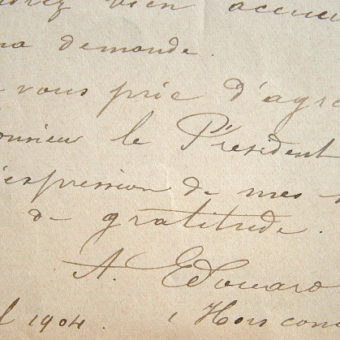 drez bien accue
ma demande.
vous prie d'agré
onsieur le Président
'expression de mes
de gratitude.
A. Edouard
l 1904. Hors conc